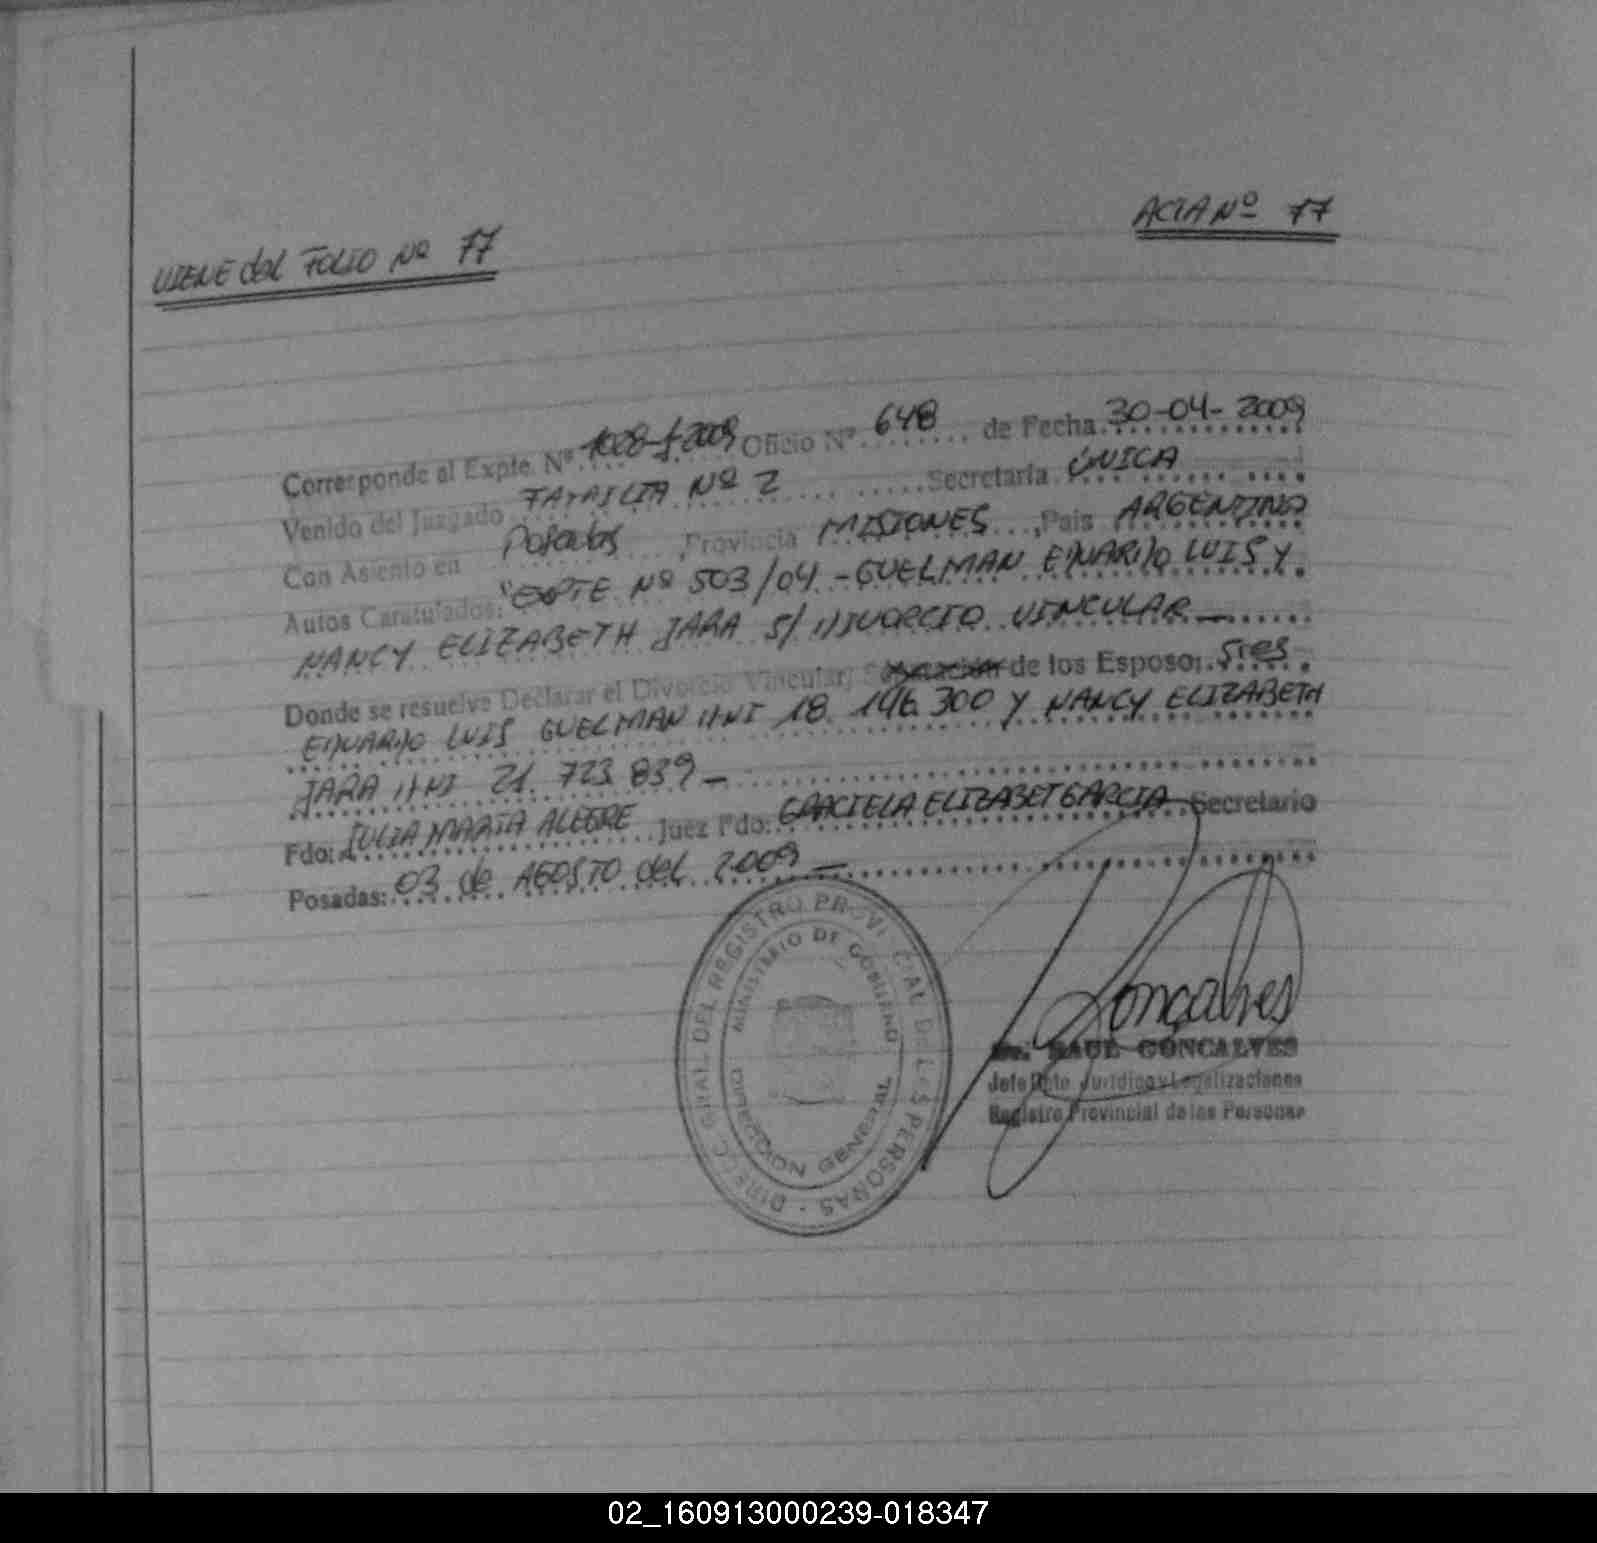 VIENE del FOLIO Nº 77
ACTA Nº 77
Corresponde al Expte. Nº 1028-J-2009 Oficio Nº 648 de Fecha 30-04-2009
Venido del Juzgado FAMILIA Nº 2 Secretaria ÚNICA
Con Asiento en Posadas, Provincia MISIONES, Pais ARGENTINO
Autos Caratulados: "EXPTE Nº 503/04 - GUELMAN EDUARDO LUIS Y
NANCY ELIZABETH JARA S/ DIVORCIO VINCULAR
Donde se resuelve Declarar el Divorcio Vincular de los Esposos: Sres
EDUARDO LUIS GUELMAN DNI 18.146.300 Y NANCY ELIZABETH
JARA DNI 21.723.839 -
Fdo: JULIA MARIA ALEGRE Juez Fdo: GRACIELA ELIZABET GARCIA Secretario
Posadas: 03 de AGOSTO del 2009 -
DIRECC. GRAL. DEL REGISTRO PROVINCIAL DE LAS PERSONAS
MINISTERIO DE GOBIERNO
DIRECCION GENERAL
Goncalves
Dr. RAUL GONCALVES
Jefe Dpto. Juridico y Legalizaciones
Registro Provincial de las Personas
02_160913000239-018347